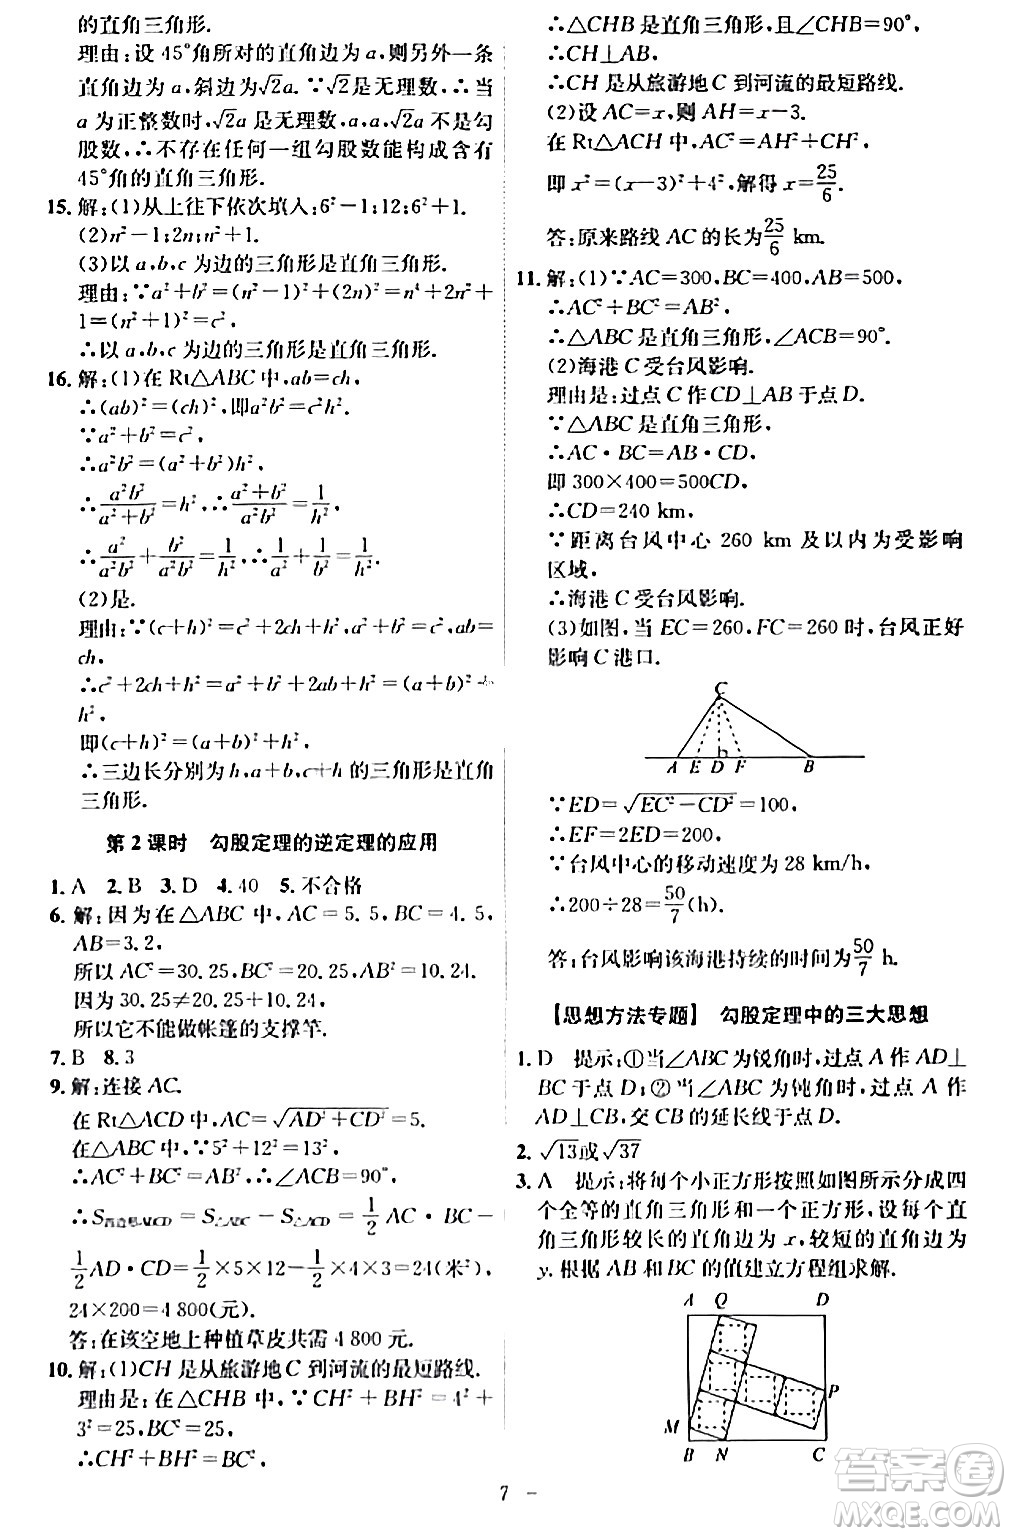 的直角三角形.
理由:设 45°角所对的直角边为 a,则另外一条
直角边为 a,斜边为√2a.∵√2是无理数,∴当
a 为正整数时,√2a 是无理数,a,a,√2a 不是勾
股数,∴不存在任何一组勾股数能构成含有
45°角的直角三角形.
15. 解:(1)从上往下依次填入:6²−1;12;6²+1.
(2)n²−1;2n;n²+1.
(3)以 a,b,c 为边的三角形是直角三角形.
理由:∵a²+b²=(n²−1)²+(2n)²=n⁴+2n²+
1=(n²+1)²=c²,
∴以 a,b,c 为边的三角形是直角三角形.
16. 解:(1)在 Rt△ABC 中,ab=ch,
∴(ab)²=(ch)²,即a²b²=c²h².
∵a²+b²=c²,
∴a²b²=(a²+b²)h²,
∴a²b²/(a²+b²)=h²,∴(a²+b²)/(a²b²)=1/h²,
∴a²/(a²b²)+b²/(a²b²)=1/h²,∴1/a²+1/b²=1/h².
(2)是.
理由:∵(c+h)²=c²+2ch+h²,a²+b²=c²,ab=
ch,
∴c²+2ch+h²=a²+b²+2ab+h²=(a+b)²+
h²,
即(c+h)²=(a+b)²+h²,
∴三边长分别为 h,a+b,c+h 的三角形是直角
三角形.
第 2 课时 勾股定理的逆定理的应用
1. A 2. B 3. D 4. 40 5. 不合格
6. 解:因为在△ABC 中,AC=5.5,BC=4.5,
AB=3.2,
所以 AC²=30.25,BC²+AB²=20.25+10.24.
因为 30.25≠20.25+10.24,
所以它不能做帐篷的支撑竿.
7. B 8. 3
9. 解:连接 AC.
在 Rt△ACD 中,AC=√(AD²+CD²)=5.
在△ABC 中,∵5²+12²=13²,
∴AC²+BC²=AB²,∴∠ACB=90°,
∴S四边形ABCD=S△ABC−S△ACD=1/2 AC·BC−
1/2 AD·CD=1/2×5×12−1/2×4×3=24(米²),
24×200=4 800(元).
答:在该空地上种植草皮共需 4 800 元.
10. 解:(1)CH 是从旅游地 C 到河流的最短路线.
理由是:在△CHB 中,∵CH²+BH²=4²+
3²=25,BC²=25,
∴CH²+BH²=BC²,
∴△CHB 是直角三角形,且∠CHB=90°,
∴CH⊥AB,
∴CH 是从旅游地 C 到河流的最短路线.
(2)设 AC=x,则 AH=x−3.
在 Rt△ACH 中,AC²=AH²+CH²,
即 x²=(x−3)²+4²,解得 x=25/6.
答:原来路线 AC 的长为25/6 km.
11. 解:(1)∵AC=300,BC=400,AB=500,
∴AC²+BC²=AB²,
∴△ABC 是直角三角形,∠ACB=90°.
(2)海港 C 受台风影响.
理由是:过点 C 作 CD⊥AB 于点 D.
∵△ABC 是直角三角形,
∴AC·BC=AB·CD,
即 300×400=500CD,
∴CD=240 km.
∵距离台风中心 260 km 及以内为受影响
区域,
∴海港 C 受台风影响.
(3)如图,当 EC=260,FC=260 时,台风正好
影响 C 港口.
C
A E D F B
∵ED=√(EC²−CD²)=100,
∴EF=2ED=200.
∵台风中心的移动速度为 28 km/h,
∴200÷28=50/7(h).
答:台风影响该海港持续的时间为50/7 h.
【思想方法专题】 勾股定理中的三大思想
1. D 提示:①当∠ABC 为锐角时,过点 A 作 AD⊥
BC 于点 D;②当∠ABC 为钝角时,过点 A 作
AD⊥CB,交 CB 的延长线于点 D.
2. √13或√37
3. A 提示:将每个小正方形按照如图所示分成四
个全等的直角三角形和一个正方形,设每个直
角三角形较长的直角边为 x,较短的直角边为
y.根据 AB 和 BC 的值建立方程组求解.
A Q D
P
M
B N C
7
答案圈
MXQE.COM